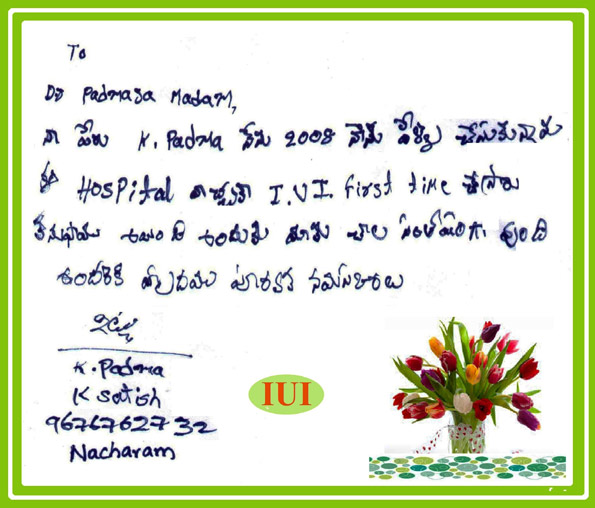 To
Dr Padmaja Madam,
నా పేరు K. Padma నేను 2008 పెళ్ళి చేసుకున్నాను
ఈ Hospital I.U.I. first time చేసారు
మాకు చాలా సంతోషంగా వుంది
అందరికి హృదయ పూర్వక నమస్కారాలు
ఇట్లు
K. Padma
K Satish
9676762732
Nacharam
IUI